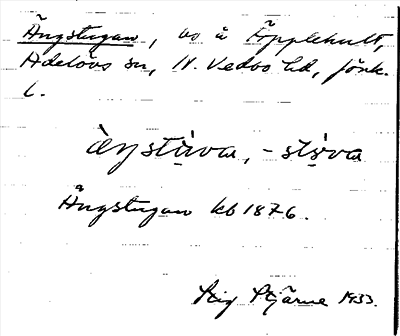 Ängstugan, vo å Äpplehult,
Adelövs sn, N. Vedbo hd, Jönk.
l.
àŋstùva, -stùva
Ängstugan kb 1876.
Stig Stjärne 1933.